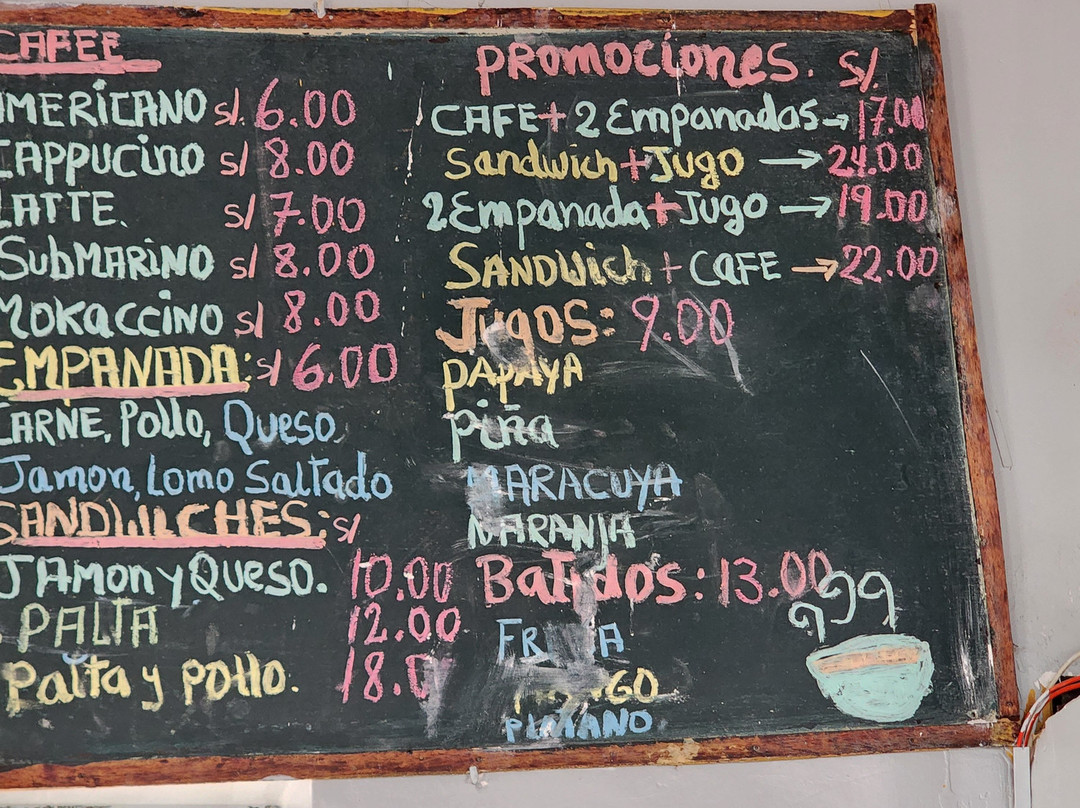 CAFEE
AMERICANO s/. 6.00
CAPPUCINO s/ 8.00
LATTE. s/ 7.00
SubMARINO s/ 8.00
MOKACCINO s/ 8.00
EMPANADA: s/ 6.00
CARNE, Pollo, Queso
Jamon, Lomo Saltado
SANDWLCHES: s/
JAMon y Queso. 10.00
PALTA 12.00
Palta y pollo. 18.0
PROMOCIONES. S/.
CAFE + 2 Empanadas → 17.00
Sandwich + Jugo → 24.00
2 Empanada + Jugo → 19.00
SANDWich + CAFE → 22.00
Jugos: 9.00
PAPAYA
piña
MARACUYA
NARANJA
Batidos: 13.00